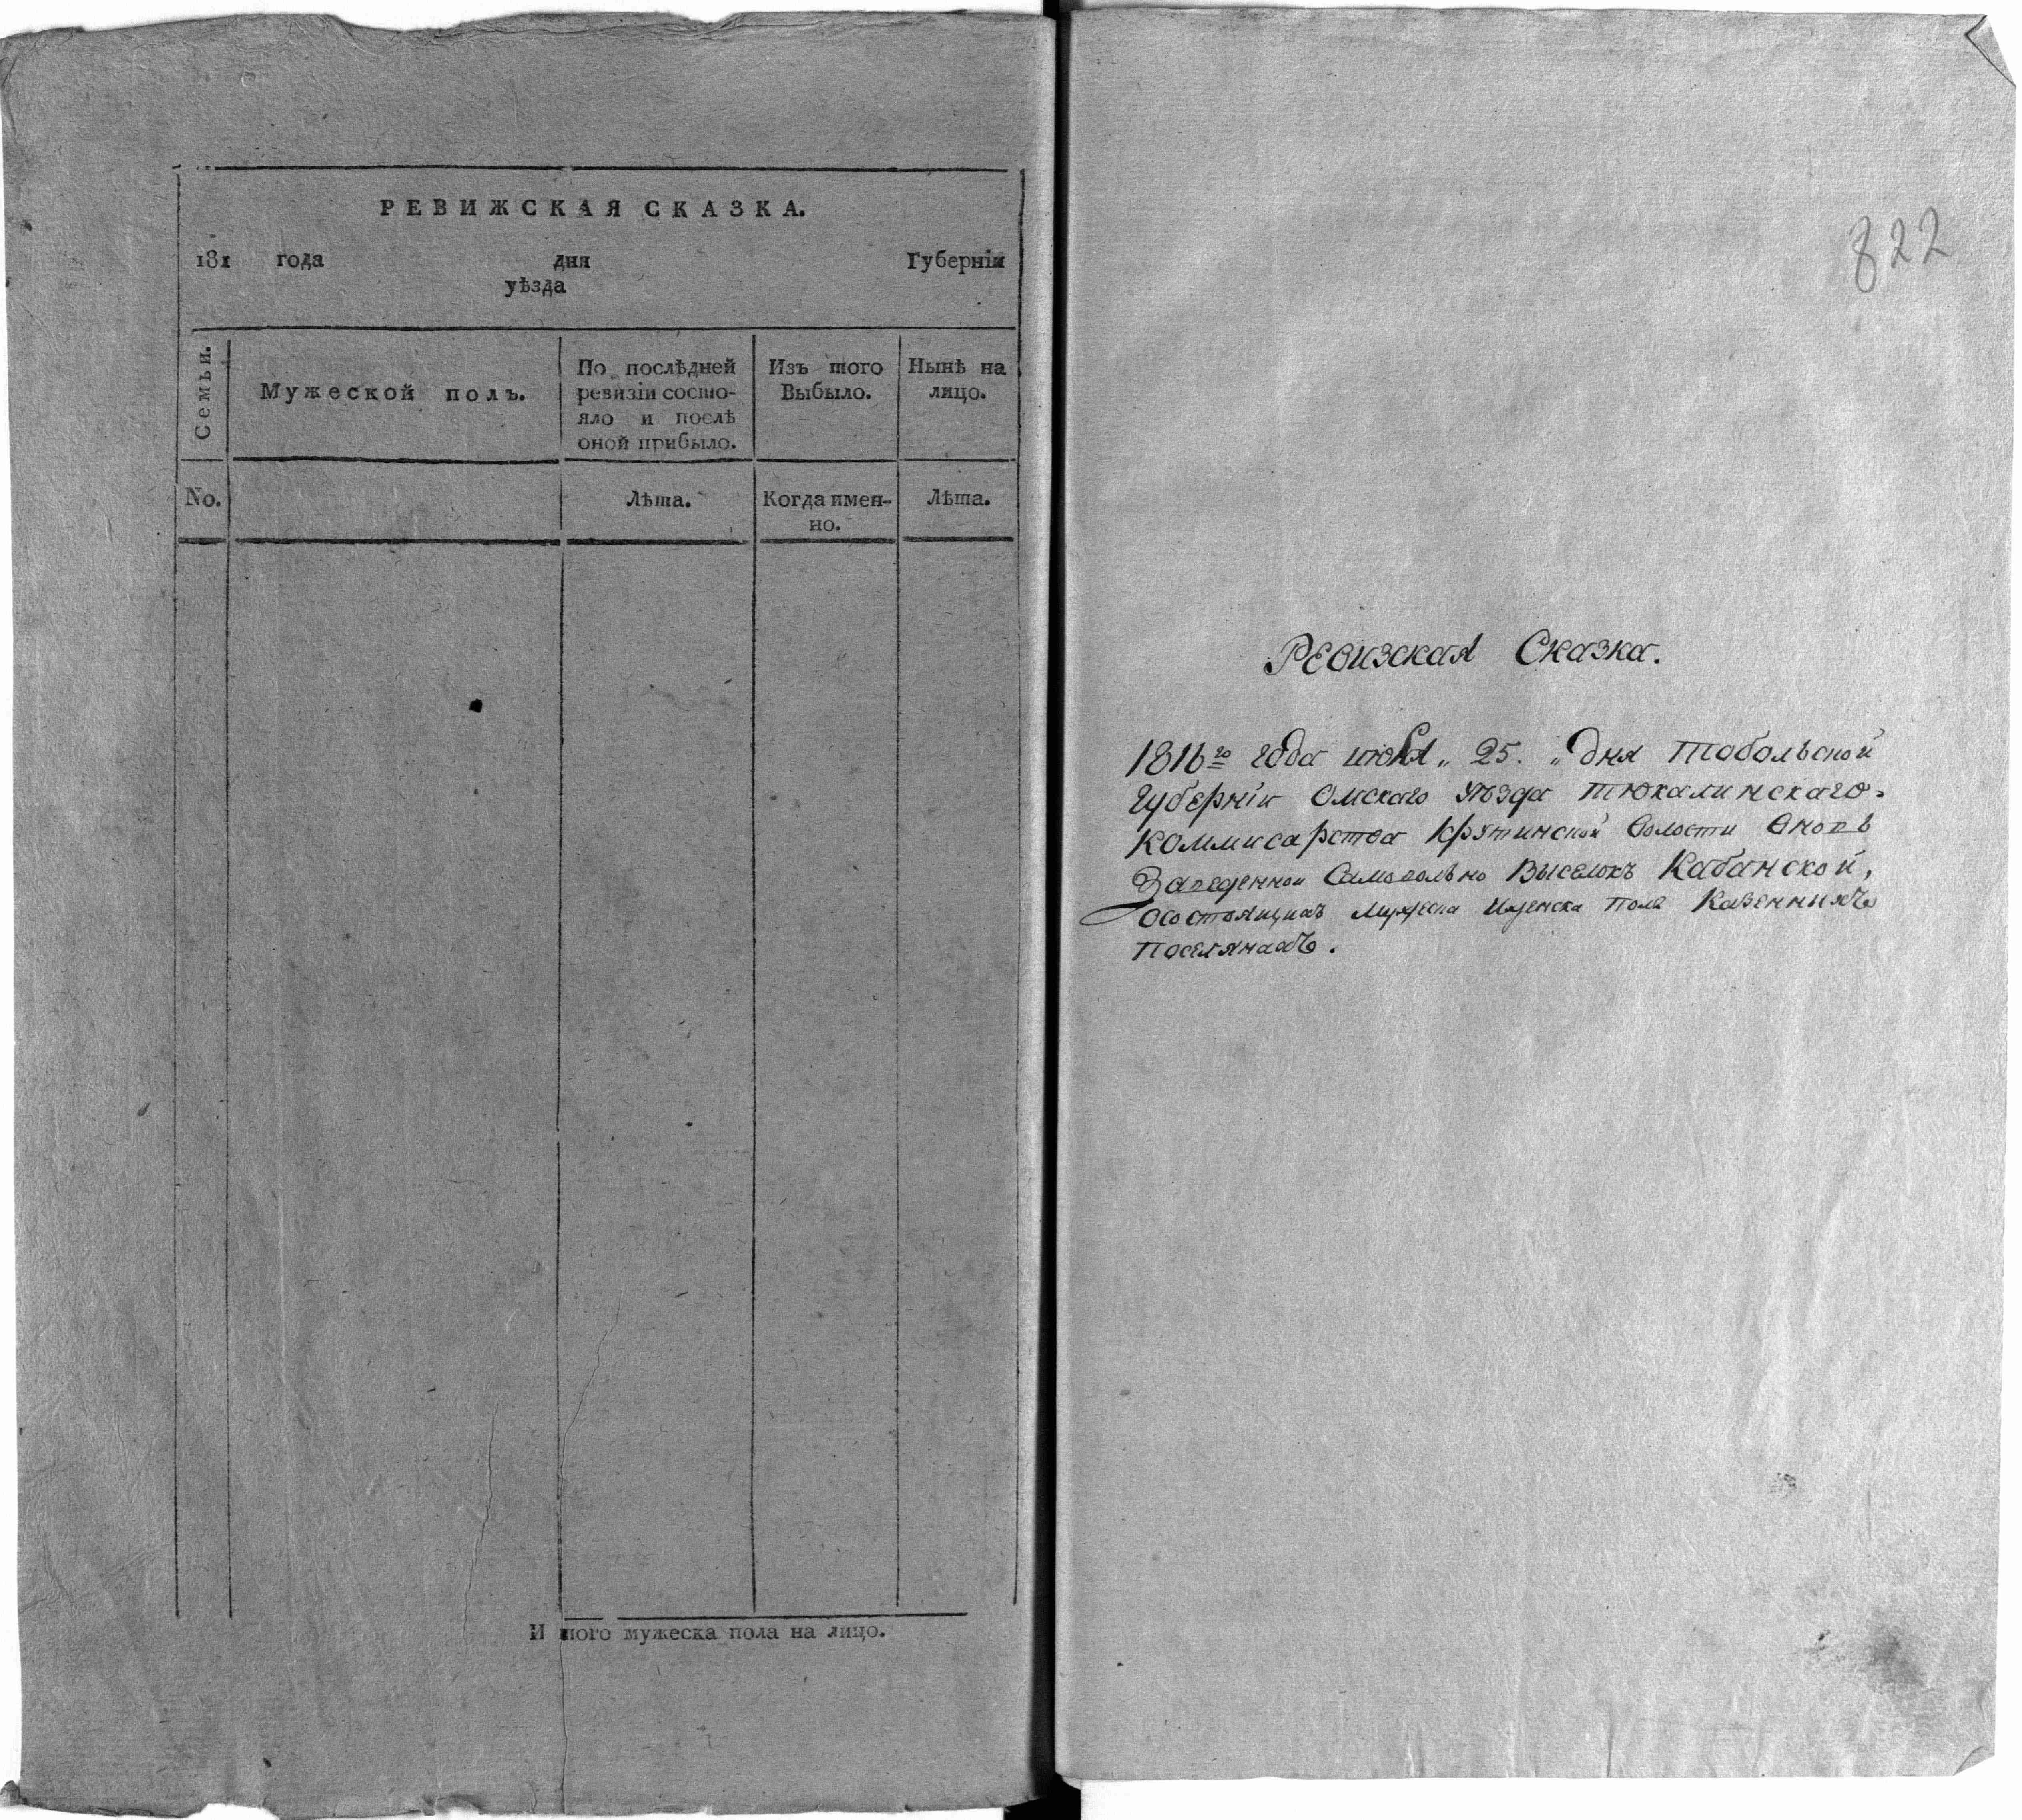 РЕВИЖСКАЯ СКАЗКА.
181 года дня Губернїи
уѣзда
Семьи.
Мужеской полъ.
По послѣдней
ревизїи состо-
яло и послѣ
оной прибыло.
Изъ того
Выбыло.
Нынѣ на
лицо.
No.
Лѣта.
Когда имен-
но.
Лѣта.
И того мужеска пола на лицо.
822
Ревизская Сказка.
1816го года июля „ 25. „ дня Тобольской
Губерніи Омскаго уѣзда Тюкалинскаго
Коммисарства Крутинской Волости Вновь
Заведенной Самовольно Выселокъ Кабанской,
Осостоящихъ Мужеска Иженска пола Казенныхъ
поселянахъ.